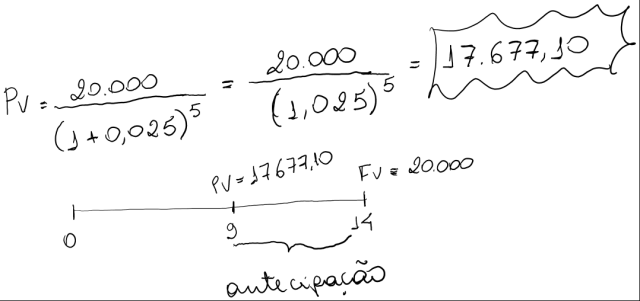 PV = 20.000 / (1 + 0,025)^5 = 20.000 / (1,025)^5 = 17.677,10
PV = 17677,10 FV = 20.000
0 9 14
antecipação